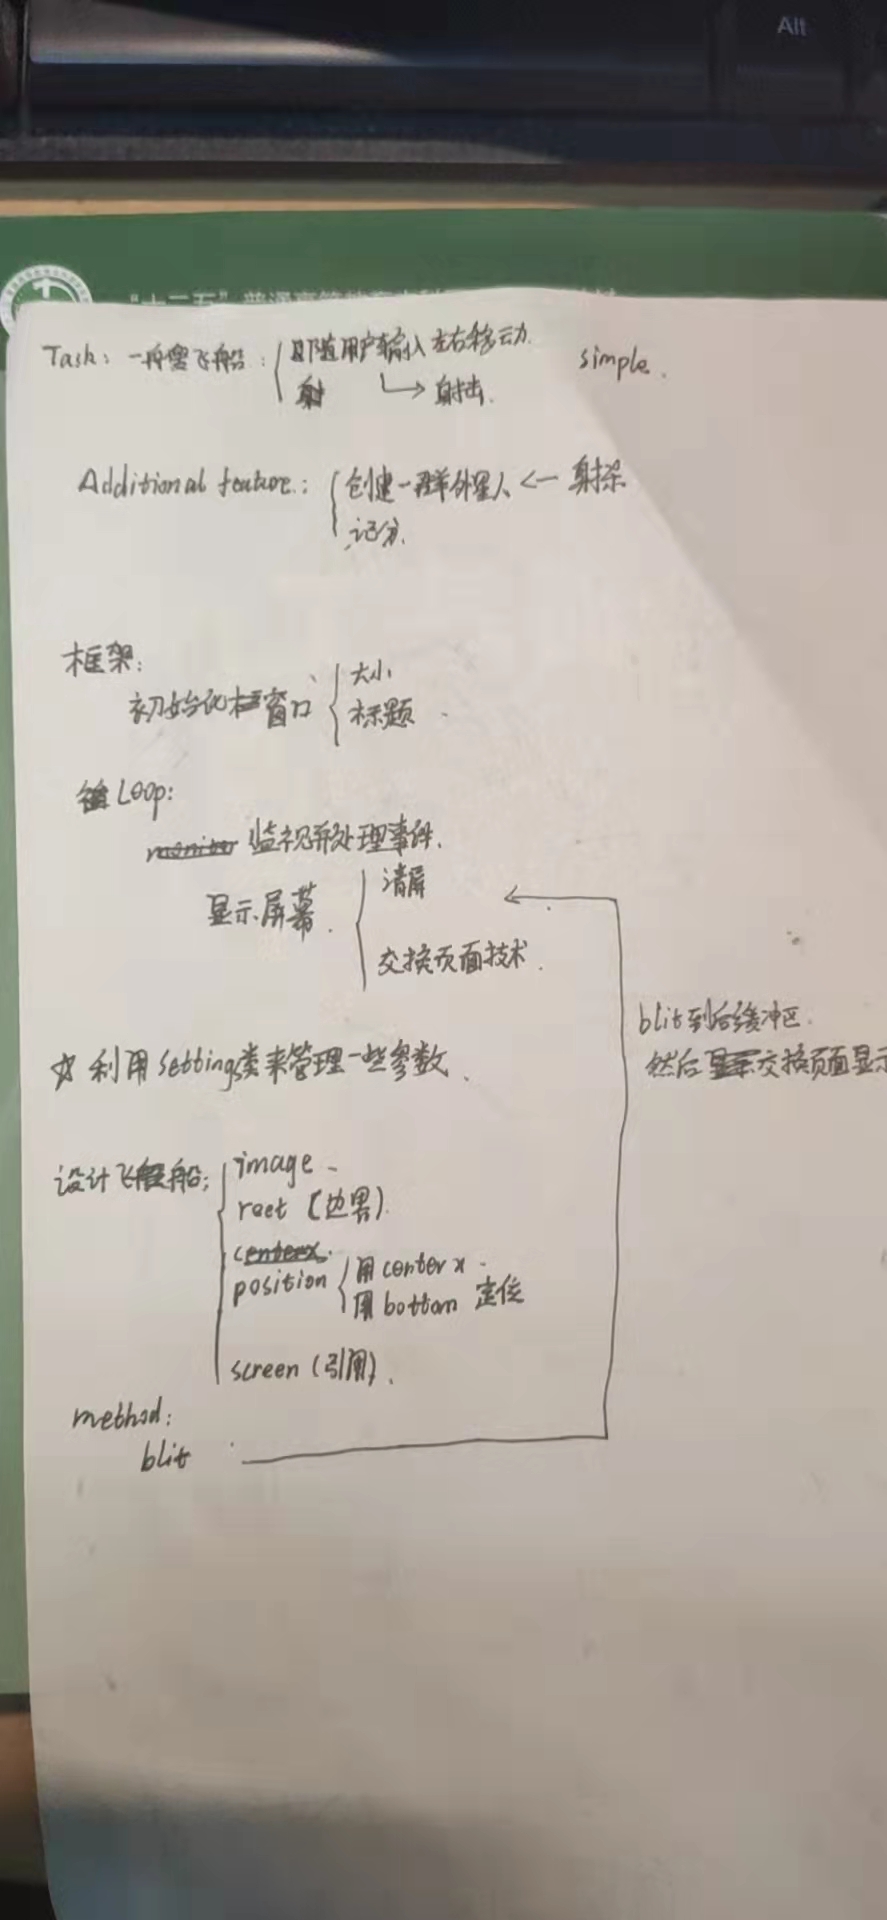 Alt
Task: 一艘飞船: 跟随用户输入左右移动. simple.
射 → 射击.
Additional feature: 创建一群外星人 <— 射杀
记分.
框架:
初始化窗口 大小
标题
Loop:
监视并处理事件.
显示屏幕. 清屏
交换页面技术.
blit到后缓冲区.
然后交换页面显示
☆ 利用setting类来管理一些参数、
设计飞船: image
rect (边界)
centerx.
position 用centerx
用bottom 定位
screen (引用).
method:
blit